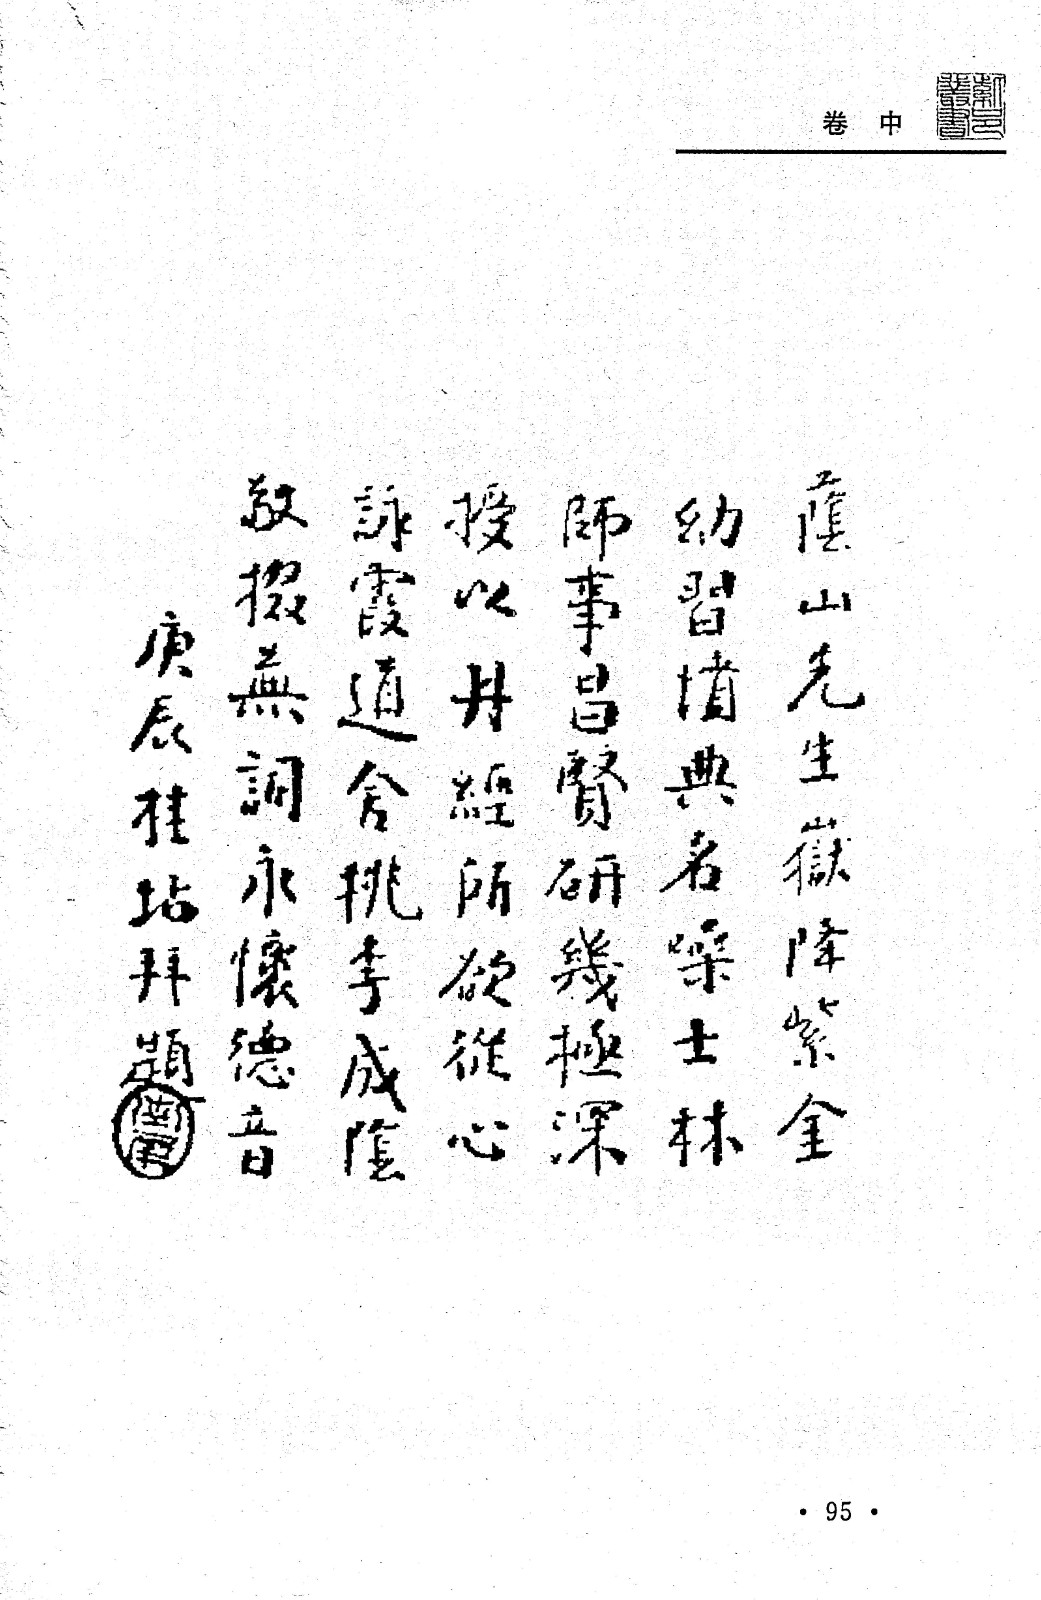 卷中
新邑叢書
蔭山先生嶽降紫金
幼習墳典名噪士林
師事昌賢研幾極深
授以丹經所欲從心
詠霞道舍桃李成陰
敬掇蕪詞永懷德音
庚辰桂坫拜題
· 95 ·